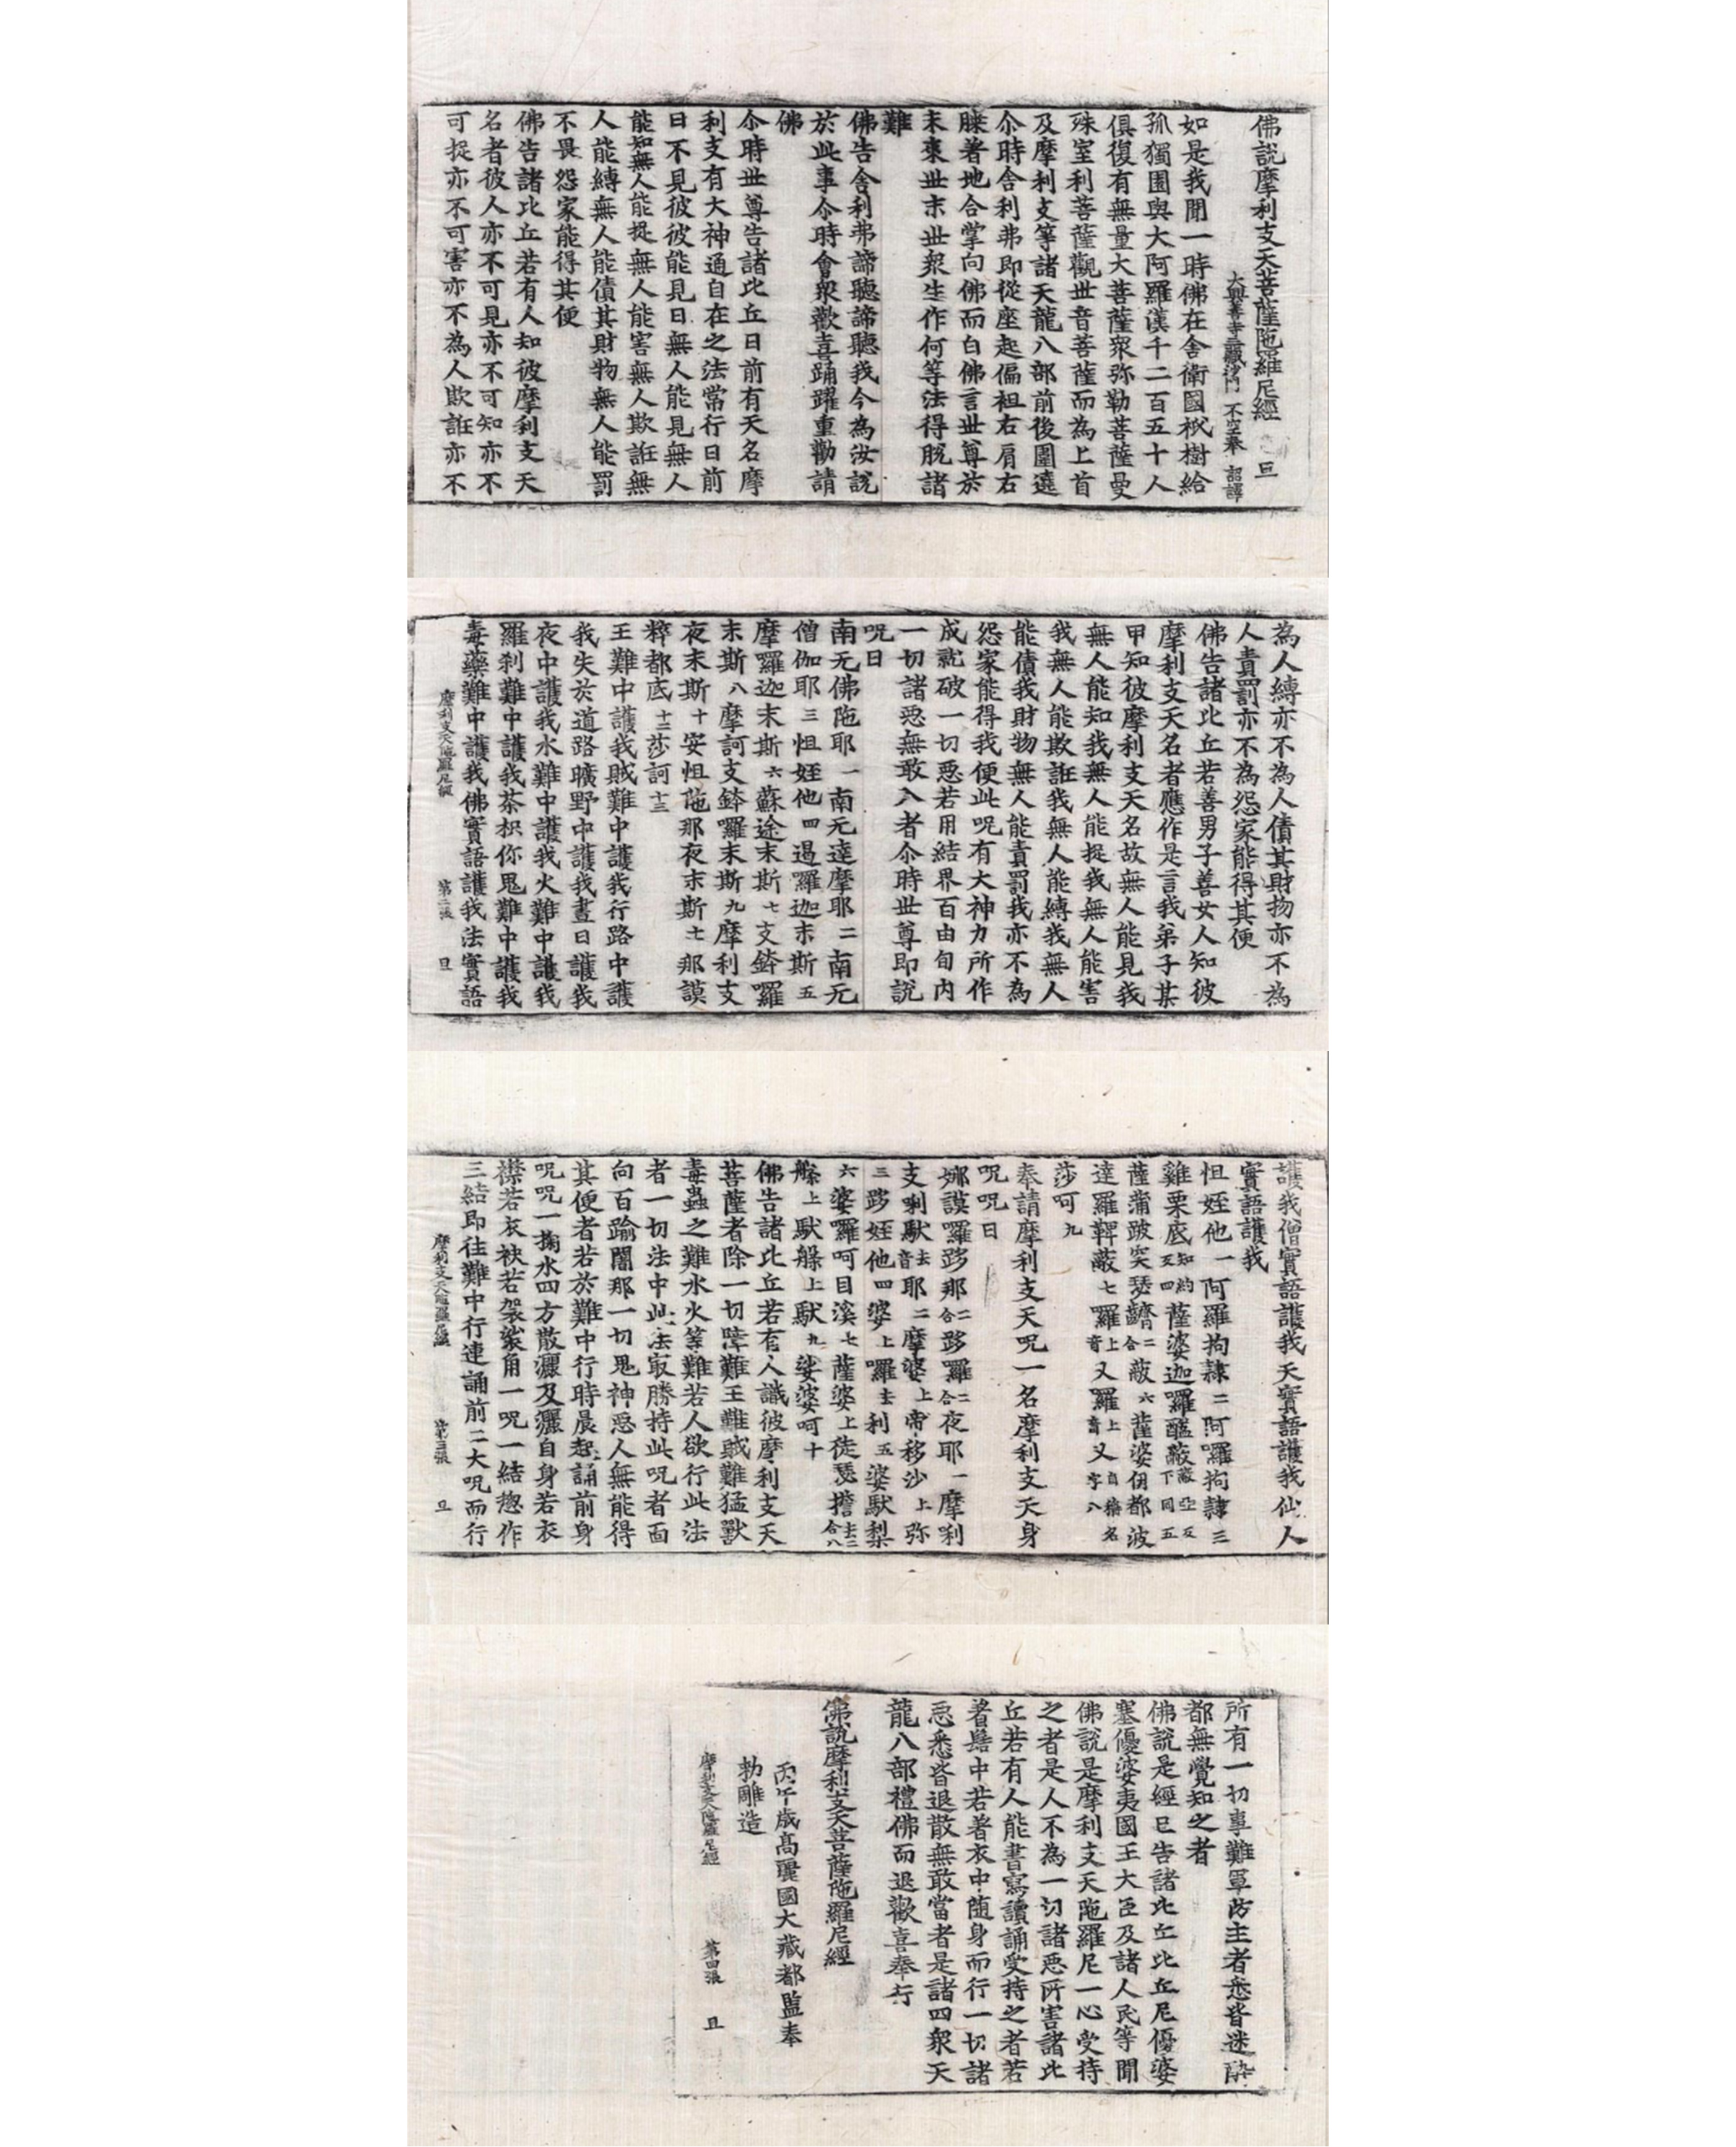 佛說摩利支天菩薩陁羅尼經 亘
大興善寺三藏沙門 不空奉 詔譯
如是我聞一時佛在舍衛國秖樹給
孤獨園與大阿羅漢千二百五十人
俱復有無量大菩薩衆弥勒菩薩曼
殊室利菩薩觀世音菩薩而為上首
及摩利支等諸天龍八部前後圍遶
尒時舍利弗即從座起偏袒右肩右
膝著地合掌向佛而白佛言世尊於
末來世末世衆生作何等法得脫諸
難
佛告舍利弗諦聽諦聽我今為汝說
於此事尒時會衆歡喜踊躍重勸請
佛
尒時世尊告諸比丘日前有天名摩
利支有大神通自在之法常行日前
日不見彼彼能見日無人能見無人
能知無人能捉無人能害無人欺誑無
人能縛無人能債其財物無人能罰
不畏怨家能得其便
佛告諸比丘若有人知彼摩利支天
名者彼人亦不可見亦不可知亦不
可捉亦不可害亦不為人欺誑亦不
為人縛亦不為人債其財物亦不為
人責罰亦不為怨家能得其便
佛告諸比丘若善男子善女人知彼
摩利支天名者應作是言我弟子某
甲知彼摩利支天名故無人能見我
無人能知我無人能捉我無人能害
我無人能欺誑我無人能縛我無人
能債我財物無人能責罰我亦不為
怨家能得我便此呪有大神力所作
成就破一切惡若用結界百由旬內
一切諸惡無敢入者尒時世尊即說
呪曰
南无佛陁耶一南无達摩耶二南无
僧伽耶三怛姪他四遏羅迦末斯五
摩羅迦末斯六蘇途末斯七支鉢囉
末斯八摩訶支鉢囉末斯九摩利支
夜末斯十安怛陁那夜末斯十一那謨
粹都底十二莎訶十三
王難中護我賊難中護我行路中護
我失於道路曠野中護我晝日護我
夜中護我水難中護我火難中護我
羅刹難中護我荼枳你鬼難中護我
毒藥難中護我佛實語護我法實語
摩利支天陁羅尼經 第二張 亘
護我僧實語護我天實語護我仙人
實語護我
怛姪他一阿羅拘隸二阿囉拘隸三
雞栗底知約反四薩婆迦囉醯蔽蔽亞反下同五
薩蒲跛突瑟齵二合蔽六薩婆伊都波
達羅鞞蔽七囉上音叉羅上音叉自稱名字八
莎呵九
奉請摩利支天呪一名摩利支天身
呪呪曰
娜謨囉跢那二合跢羅二合夜耶一摩唎
支唎馱去音耶二摩婆上帝移沙上弥
三跢姪他四婆上囉去利五婆馱梨
六婆囉呵目溪七薩婆上徒瑟㨾
躲上馱躲上馱九娑婆呵十
佛告諸比丘若有人識彼摩利支天
菩薩者除一切障難王難賊難猛獸
毒蟲之難水火等難若人欲行此法
者一切法中此法㝡勝持此呪者面
向百踰闍那一切鬼神惡人無能得
其便者若於難中行時晨起誦前身
呪呪一掬水四方散灑及灑自身若衣
襟若衣袂若袈裟角一呪一結惣作
三結即往難中行連誦前二大呪而行
摩利支天陁羅尼經 第三張 亘
所有一切事難軍防主者悉皆迷醉
都無覺知之者
佛說是經已告諸比丘比丘尼優婆
塞優婆夷國王大臣及諸人民等聞
佛說是摩利支天陁羅尼一心受持
之者是人不為一切諸惡所害諸比
丘若有人能書寫讀誦受持之者若
著髻中若著衣中随身而行一切諸
惡悉皆退散無敢當者是諸四衆天
龍八部禮佛而退歡喜奉行
佛說摩利支天菩薩陁羅尼經
丙午歳高麗國大藏都監奉
勑雕造
摩利支天陁羅尼經 第四張 亘